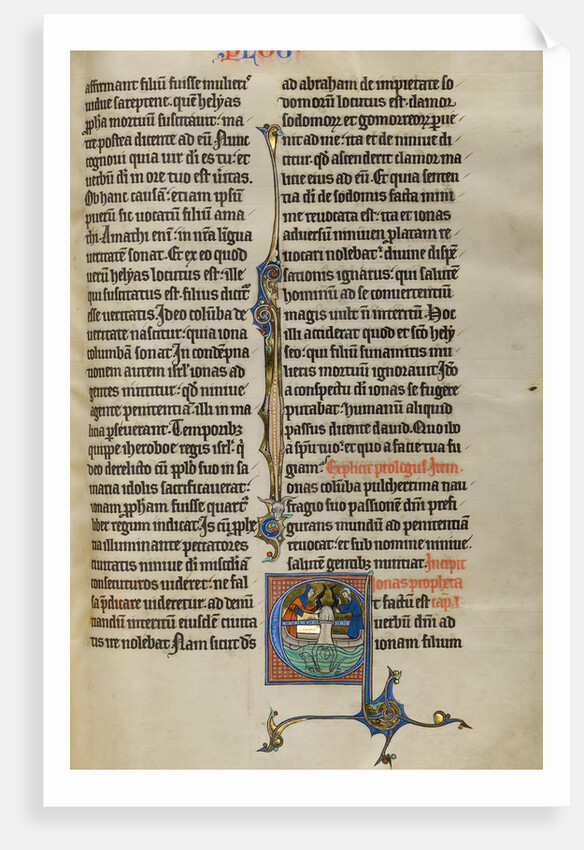 PLOG
affirmant filiū fuisse mulierˢ
uidue sareptene. quē helyas
ꝓpha mortuum suscitauit: ma
tre postea dicente ad eū. Nunc
cognoui quia uir dī es tu: et
uerbū dī in ore tuo est uītas.
Ob hanc causā: etiam ipsū
puerū sic uocatum filiū ama
thi. Amathi enī: in nrā līgua
ueritatē sonat. Et ex eo quod
uerū helyas locutus est: ille
qui suscitatus est. filius dicitˢ
esse ueritatis. Ideo colūba de
ueritate nascitur: quia iona
columbā sonat. In condēpna
tionem autem isrl̄. ionas ad
gentes mittitur. qd̄ niniue
agente penitentiā. illi in ma
licia ꝑseuerant. Temporibꝫ
quippe iheroboe regis isrl̄. q̄
deo derelicto cū pplō suo in sa
maria idolis sacrificauerat:
ionam ꝓpham fuisse quartˢ
liber regum indicat. Is cū ꝓphe
tia illuminante peccatores
ciuitatis niniue dī misc̄diā
consecuturos uideret: ne fal
sa p̄dicare uideretur. ad denū
tiandū interitū eiusdē ciuita
tis ire nolebat. Nam sicut dn̄s
ad abraham de impietate so
domorū locutus est. clamor
sodomorꝫ et gomorreorꝫ ꝑue
nit ad me: ita et de niniue di
citur. qd̄ ascenderit clamor ma
licie eius ad eū. Et quia senten
tia dī de sodomis facta mini
me reuocata est: ita et ionas
aduersū niniuen ꝓlatam re
uocari nolebatˢ: diuine dispē
sationis ignarus: qui salutē
hominū ad se conuertentiū
magis uult q̄ interitū. Hoc
illi acciderat quod et scō hely
seo: qui filiū sunamitis mu
lieris mortuū ignorauit. Idō
a conspectu dī ionas se fugere
putabat: humanū aliquid
passus dicente dauid. Quo ibo
a spū tuo: et quo a facie tua fu
giam: Explicit prologus. Item
ionas colūba pulcherrima nau
fragio suo passionē dn̄i prefi
gurans mundū ad penitentiā
reuocat: et sub nomine niniue.
salutē gentibꝫ nuntiat. Incipit
ionas propheta
Et factū est cap̄. I.
uerbū dn̄i ad
ionam filium